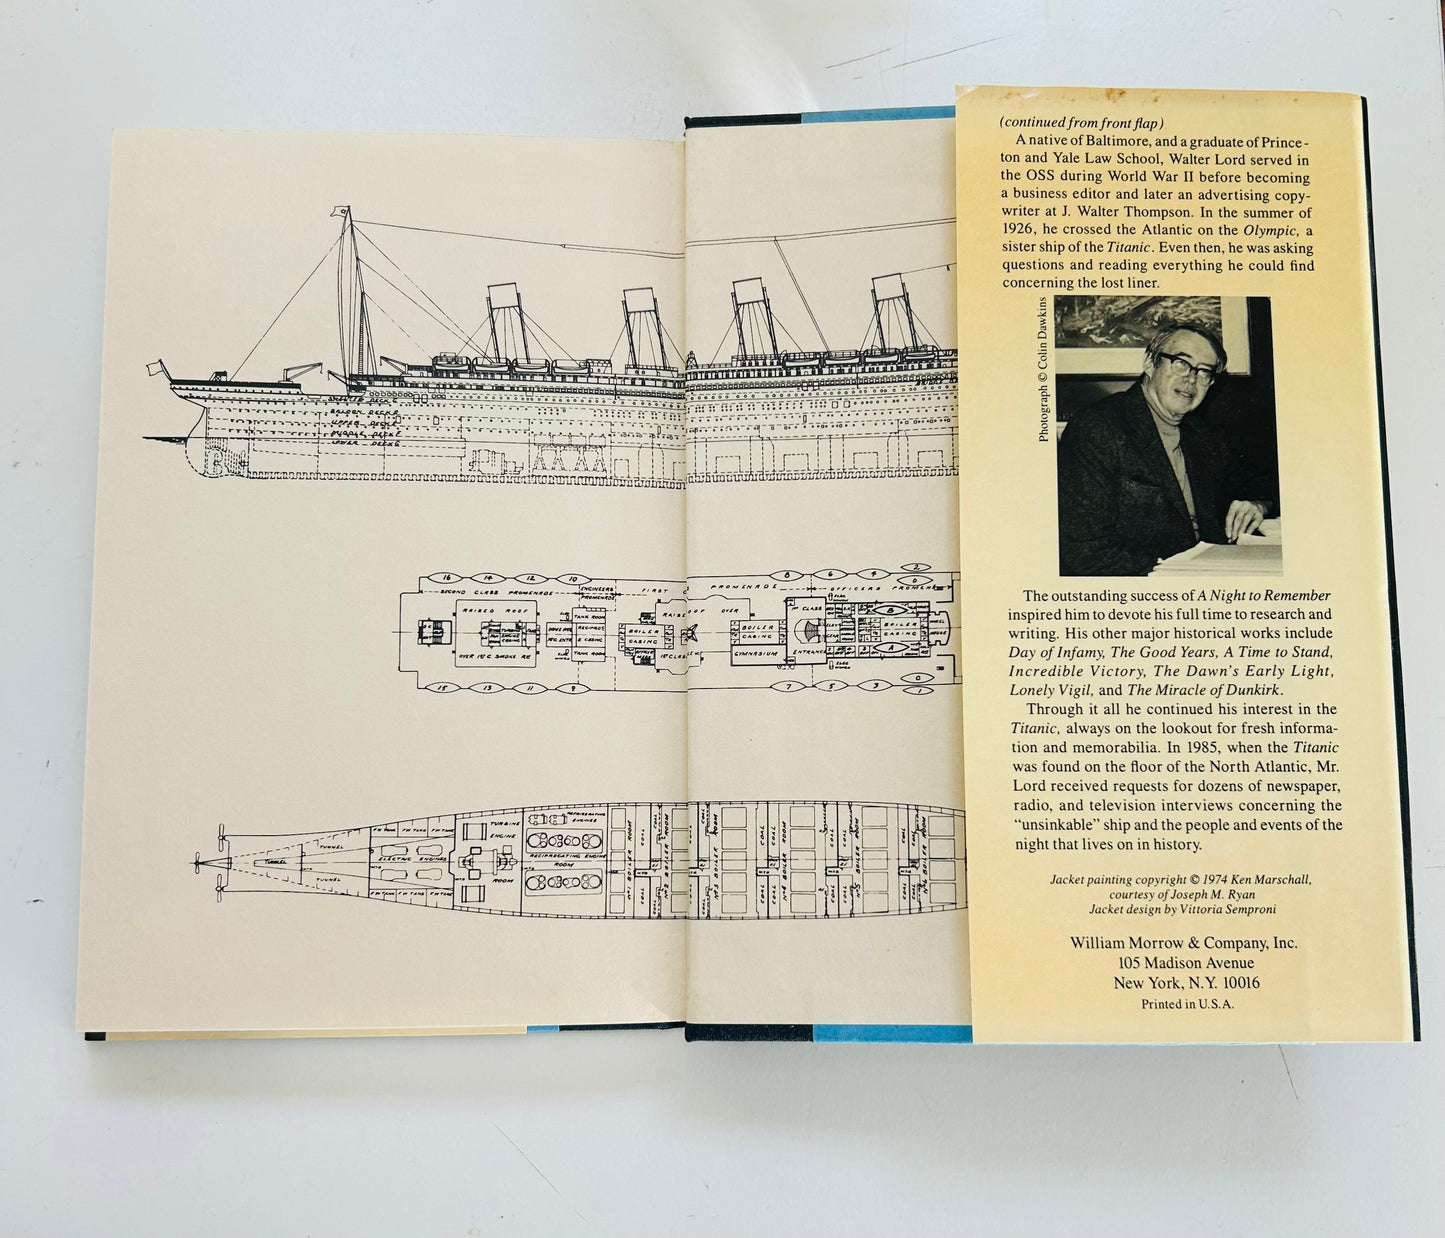 SHELTER DECK C
SALOON DECK D
UPPER DECK E
MIDDLE DECK F
LOWER DECK G
16 14 12 10 8 6 4 2
SECOND CLASS PROMENADE
ENGINEERS
PROMENADE
FIRST C
PROMENADE
OFFICERS PROMEN
RAISED ROOF
TANK ROOM
RAISE
OF OVER
1ST CLASS
BOILER
CASING
BOILER
CASING
BOILER
CASING
OVER 1ST C SMOKE RM
TANK ROOM
1ST CLASS
GYMNASIUM
ENTRANCE
15 13 11 9 7 5 3 1
REFRIGERATING
ENGINES
TURBINE
ENGINE
ROOM
F W TANK F W TANK F W TANK
TUNNEL
TUNNEL
TUNNEL
ELECTRIC ENGINES
RECIPROCATING ENGINE
ROOM
F W TANK F W TANK F W TANK
Nº 1 BOILER ROOM
COAL
COAL
Nº 2 BOILER ROOM
COAL
COAL
Nº 3 BOILER ROOM
COAL
COAL
Nº 4 BOILER ROOM
COAL
COAL
Nº 5 BOILER ROOM
COAL
COAL
Nº 6 BOILER ROOM
(continued from front flap)
A native of Baltimore, and a graduate of Prince-
ton and Yale Law School, Walter Lord served in
the OSS during World War II before becoming
a business editor and later an advertising copy-
writer at J. Walter Thompson. In the summer of
1926, he crossed the Atlantic on the Olympic, a
sister ship of the Titanic. Even then, he was asking
questions and reading everything he could find
concerning the lost liner.
Photograph © Colin Dawkins
The outstanding success of A Night to Remember
inspired him to devote his full time to research and
writing. His other major historical works include
Day of Infamy, The Good Years, A Time to Stand,
Incredible Victory, The Dawn's Early Light,
Lonely Vigil, and The Miracle of Dunkirk.
Through it all he continued his interest in the
Titanic, always on the lookout for fresh informa-
tion and memorabilia. In 1985, when the Titanic
was found on the floor of the North Atlantic, Mr.
Lord received requests for dozens of newspaper,
radio, and television interviews concerning the
“unsinkable” ship and the people and events of the
night that lives on in history.
Jacket painting copyright © 1974 Ken Marschall,
courtesy of Joseph M. Ryan
Jacket design by Vittoria Semproni
William Morrow & Company, Inc.
105 Madison Avenue
New York, N.Y. 10016
Printed in U.S.A.